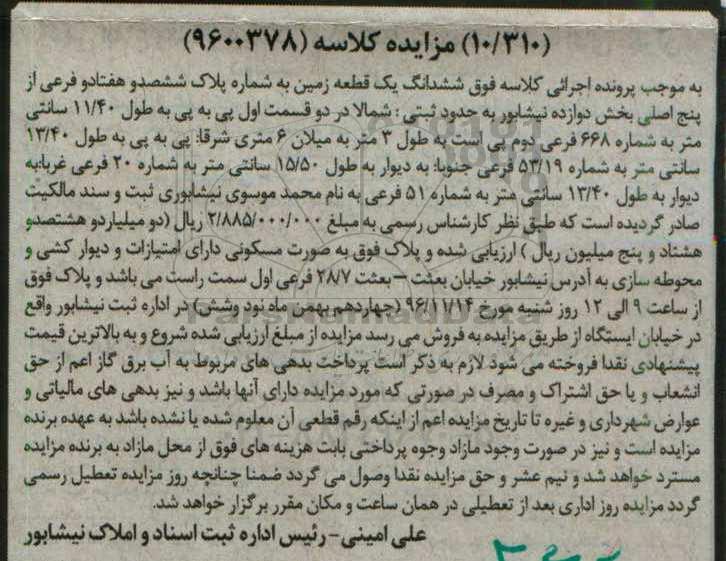 (۱۰/۳۱۰) مزایده کلاسه (۹۶۰۰۳۷۸)
به موجب پرونده اجرائی کلاسه فوق ششدانگ یک قطعه زمین به شماره پلاک ششصدو هفتادو فرعی از
پنج اصلی بخش دوازده نیشابور به حدود ثبتی : شمالا در دو قسمت اول پی به پی به طول ۱۱/۴۰ سانتی
متر به شماره ۶۶۸ فرعی دوم پی است به طول ۳ متر به میلان ۶ متری شرقا: پی به پی به طول ۱۳/۴۰
سانتی متر به شماره ۵۳/۱۹ فرعی جنوبا: به دیوار به طول ۱۵/۵۰ سانتی متر به شماره ۲۰ فرعی غربا:به
دیوار به طول ۱۳/۴۰ سانتی متر به شماره ۵۱ فرعی به نام محمد موسوی نیشابوری ثبت و سند مالکیت
صادر گردیده است که طبق نظر کارشناس رسمی به مبلغ ۲/۸۸۵/۰۰۰/۰۰۰ ریال (دو میلیاردو هشتصدو
هشتاد و پنج میلیون ریال ) ارزیابی شده و پلاک فوق به صورت مسکونی دارای امتیازات و دیوار کشی و
محوطه سازی به آدرس نیشابور خیابان بعثت –بعثت ۲۸/۷ فرعی اول سمت راست می باشد و پلاک فوق
از ساعت ۹ الی ۱۲ روز شنبه مورخ ۹۶/۱۱/۱۴ (چهاردهم بهمن ماه نود وشش) در اداره ثبت نیشابور واقع
در خیابان ایستگاه از طریق مزایده به فروش می رسد مزایده از مبلغ ارزیابی شده شروع و به بالاترین قیمت
پیشنهادی نقدا فروخته می شود لازم به ذکر است پرداخت بدهی های مربوط به آب برق گاز اعم از حق
انشعاب و یا حق اشتراک و مصرف در صورتی که مورد مزایده دارای آنها باشد و نیز بدهی های مالیاتی و
عوارض شهرداری و غیره تا تاریخ مزایده اعم از اینکه رقم قطعی آن معلوم شده یا نشده باشد به عهده برنده
مزایده است و نیز در صورت وجود مازاد وجوه پرداختی بابت هزینه های فوق از محل مازاد به برنده مزایده
مسترد خواهد شد و نیم عشر و حق مزایده نقدا وصول می گردد ضمنا چنانچه روز مزایده تعطیل رسمی
گردد مزایده روز اداری بعد از تعطیلی در همان ساعت و مکان مقرر برگزار خواهد شد.
علی امینی- رئیس اداره ثبت اسناد و املاک نیشابور